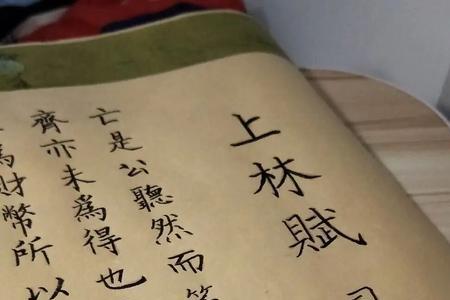 上林賦
亡是公聽然而笑
齊亦未爲得也
爲財幣所以